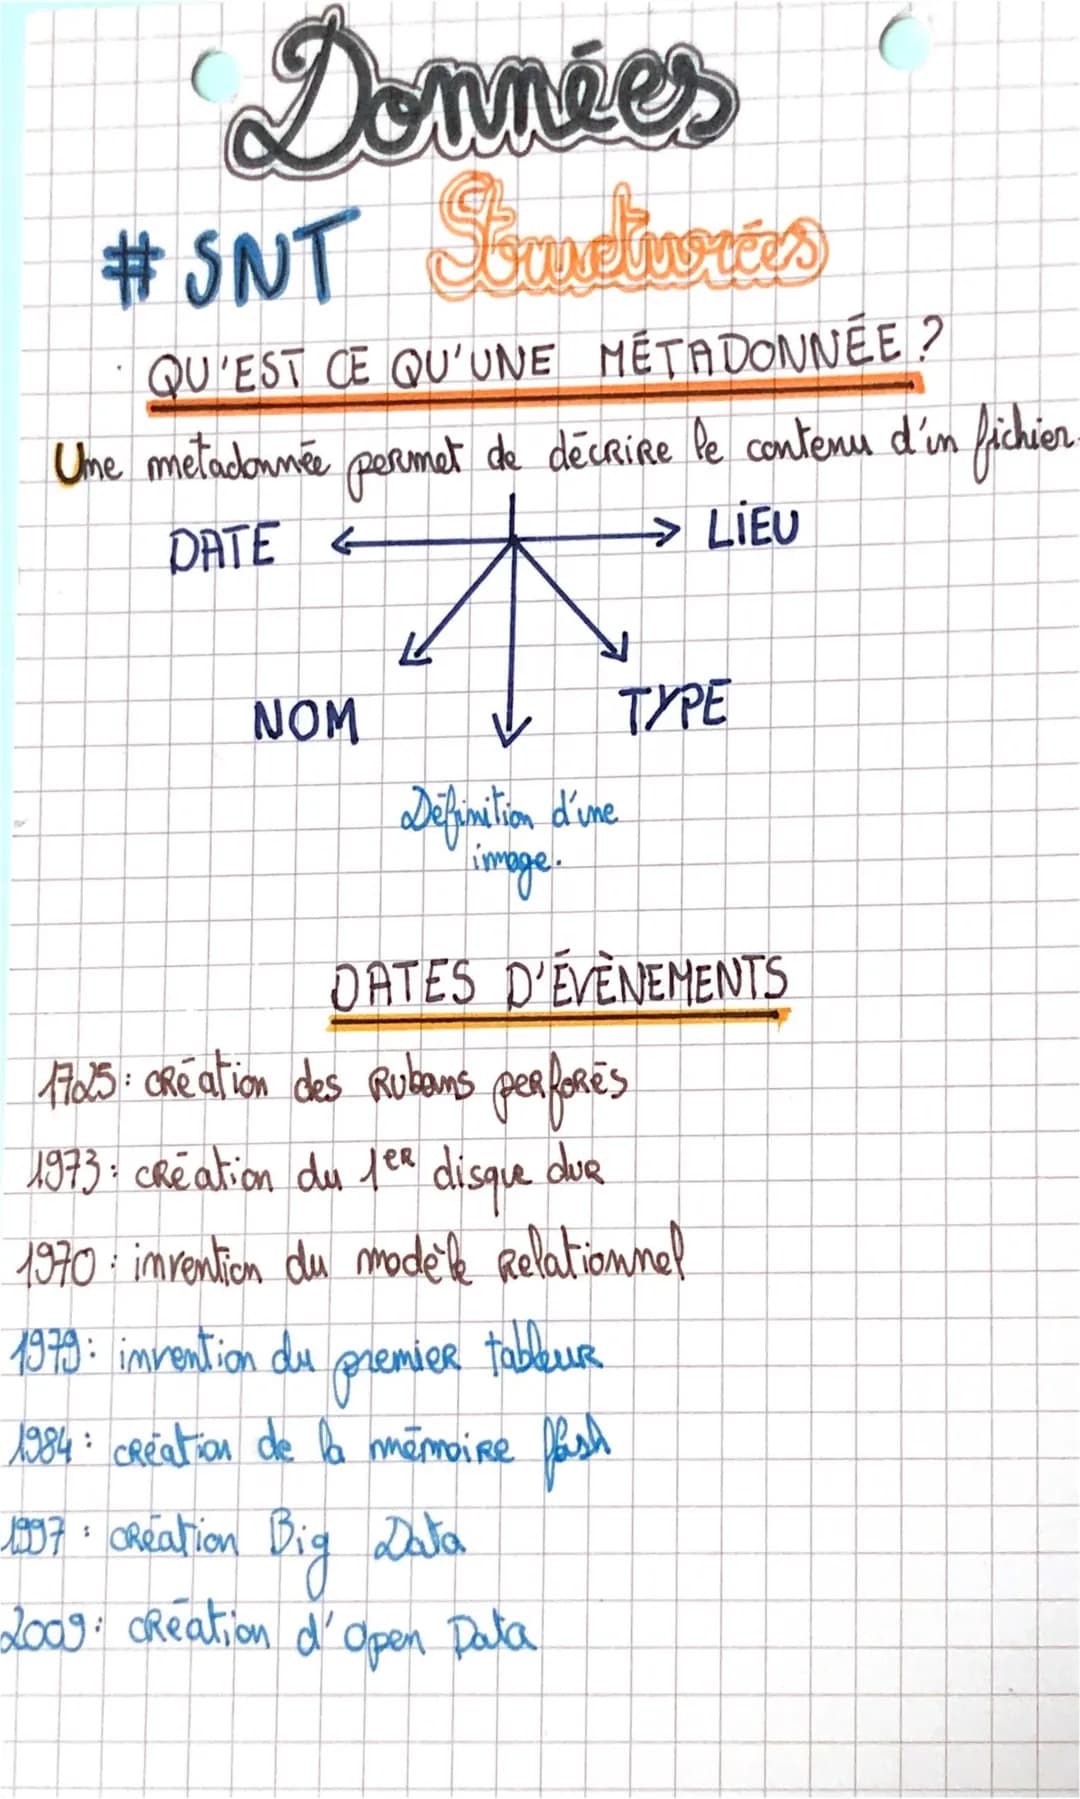 Données
# SNT Structurées
QU'EST CE QU'UNE MÉTADONNÉE ?
Une métadonnée permet de décrire le contenu d'un fichier.
DATE LIEU
NOM TYPE
Définition d'une
image.
DATES D'ÉVÈNEMENTS
1725: création des Rubans perforés
1973: création du 1er disque dur
1970: invention du modèle Relationnel
1979: invention du premier tableur
1984: création de la mémoire flash
1997: création Big Data
2009: création d'Open Data